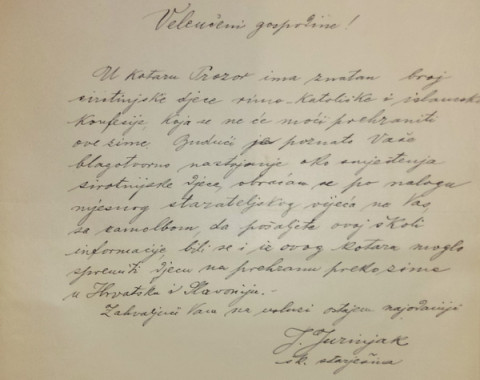 Veleučeni gospodine!
U kotaru Prozor ima znatan broj
sirotinjske djece rimo-katoličke i islamske
konfesije, koja se ne će moći prehraniti
ove zime. Budući je poznato Vaše
blagotvorno nastojanje oko smještenja
sirotinjske djece, obraćam se po nalogu
mjesnog starateljskog vijeća na Vas,
sa zamolbom, da pošaljete ovoj školi
informacije, bili se i iz ovog kotara moglo
spremiti djecu na prehranu preko zime
u Hrvatsku i Slavoniju.-
Zahvaljući Vam na volunci ostajem najodaniji
J. Jurinjak
šk. starješina